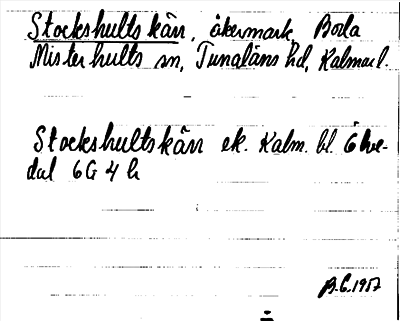 Stockshults kärr, åkermark, Boda
Misterhults sn, Tunaläns hd, Kalmar l.
Stockshultskärr ek. Kalm. bl. Ålve-
dal 6G 4h
B.E. 1957